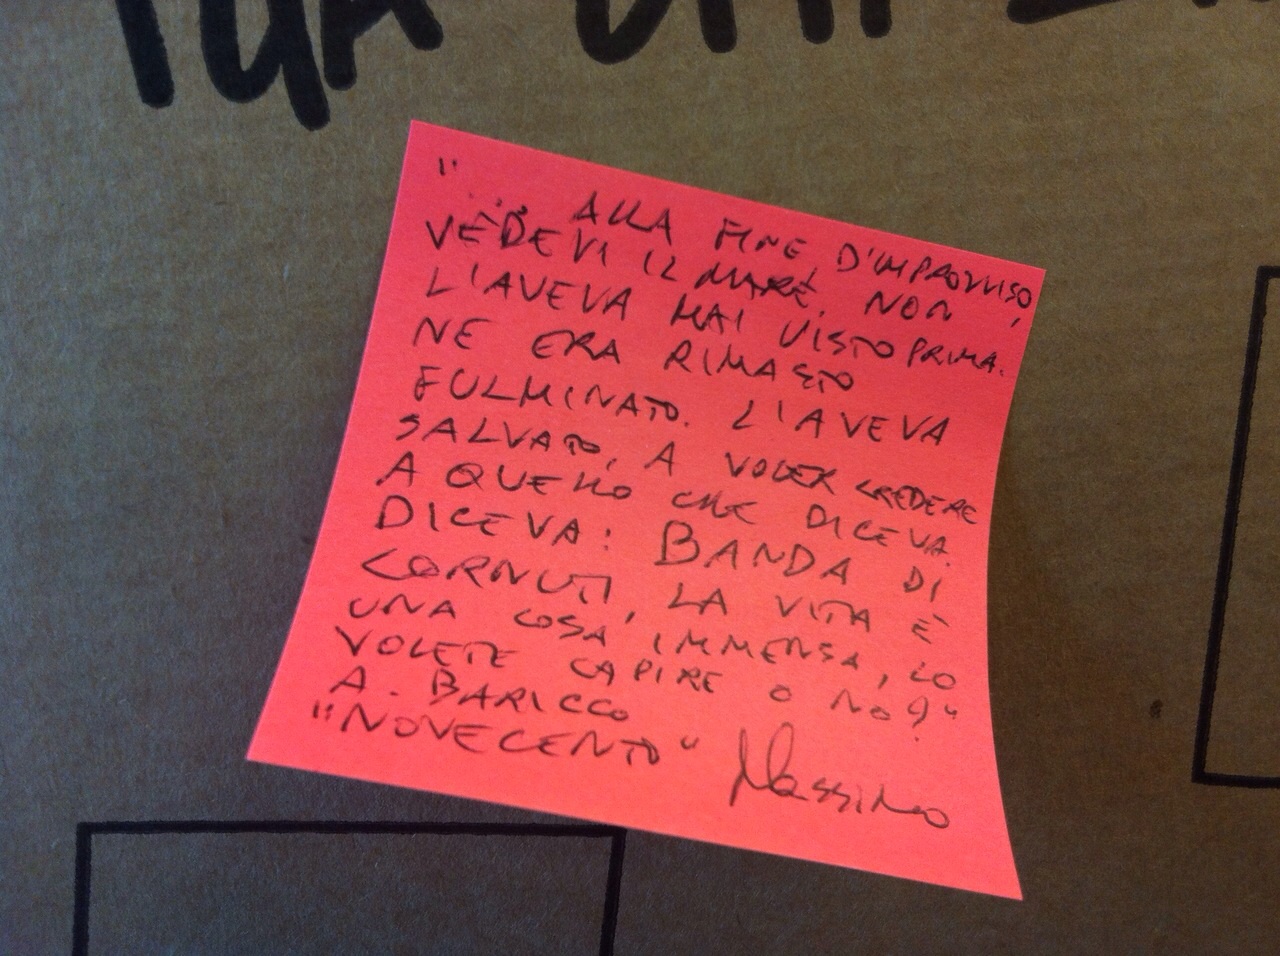 "... ALLA FINE, D'IMPROVVISO,
VEDEVI IL MARE. NON
L'AVEVA MAI VISTO PRIMA.
NE ERA RIMASTO
FULMINATO. L'AVEVA
SALVATO, A VOLER CREDERE
A QUELLO CHE DICEVA.
DICEVA: BANDA DI
CORNUTI, LA VITA È
UNA COSA IMMENSA, LO
VOLETE CAPIRE O NO?"
A. BARICCO
"NOVECENTO" Massimo